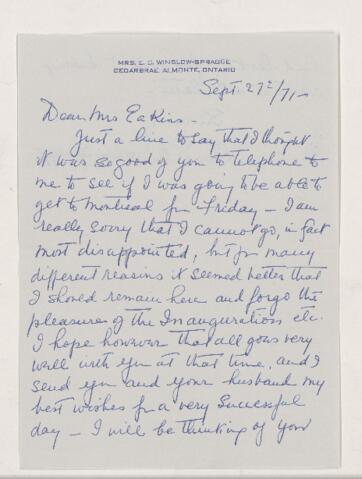 MRS. E. D. WINSLOW-SPRAGGE
CEDARBRAE, ALMONTE, ONTARIO
Sept. 27th/71-
Dear Mrs Eakins -
Just a line to say that I thought
it was so good of you to telephone to
me to see if I was going to be able to
get to Montreal for Friday - I am
really sorry that I cannot go, in fact
most disappointed, but for many
different reasons it seemed better that
I should remain here and forgo the
pleasures of the Inaugurations etc.
I hope however that all goes very
well with you at that time, and I
send you and your husband my
best wishes for a very successful
day - I will be thinking of your